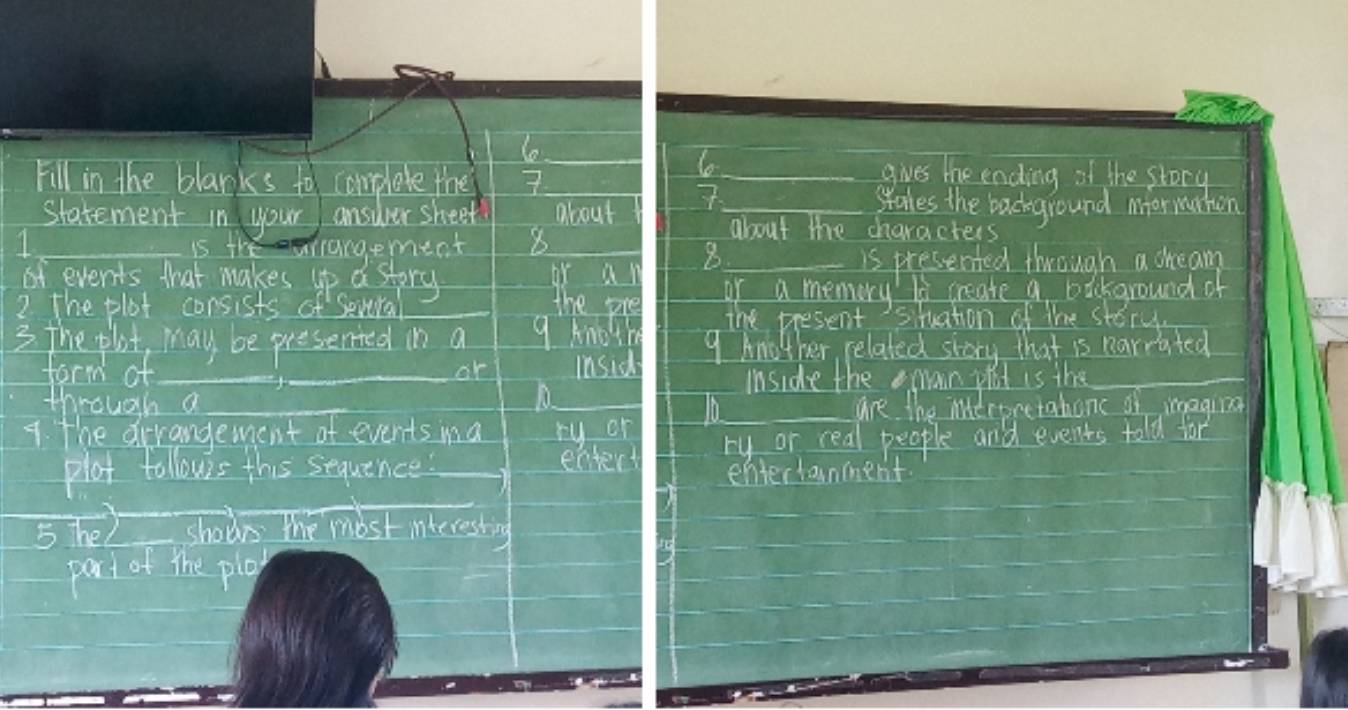 Fill in the blanks to complete the
statement in your answer sheet
1. ________ is the arrangement
of events that makes up a story
2. The plot consists of several ______
3. The plot may be presented in a
form of ________, ________ or
through a ________
4. The arrangement of events in a
plot follows this sequence: ____,
____, ________
5 The ____ shows the most interesting
part of the plot
6. ________
7. ________
about
8 ________
or a m
the pre
9 Anothe
insid
10 ________
ry or
entert
6. ________ gives the ending of the story
7. ________ States the background information
about the characters
8. ________ is presented through a dream
or a memory to create a background of
the present situation of the story.
9 Another related story that is narrated
inside the main plot is the ________
10 ________ are the interpretations of imagina
ry or real people and events told for
entertainment.